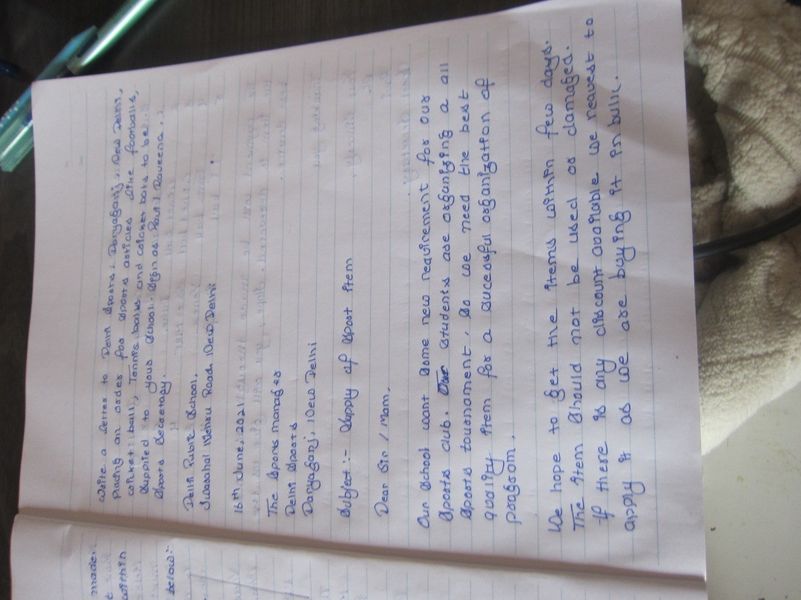 Write a letter to Delhi Sports, Daryaganj, New Delhi,
placing an order for sports articles like footballs,
cricket ball, Tennis balls and cricket bats to be
supplied to your school. Sign as Paul / Raveena.
Sports Secretary.
Delhi Public School,
Jawahal Nehru Road, New Delhi
16th June, 2021
The Sports manager
Delhi Sports
Daryaganj, New Delhi
Subject :- Supply of Sport item
Dear Sir / Mam,
Our School want some new requirement for our
Sports club. Students are organizing a all
Sports tournament, so we need the best
quality item for a sucessful organization of
program.
We hope to get the items within few days.
The item should not be used or damaged.
If there is any discount available we request to
apply it as we are buying it in bulk.
made.
within
below:-